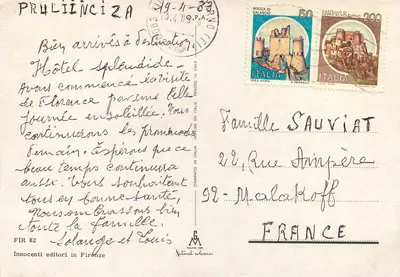 PRULIÏNCIZA
19-4-83
Bien arrivés à destination
Hôtel splendide -
Avons commencé la visite
de Florence par une belle
journée ensoleillée. Nous
continuerons les promenades
demain. Espérons que ce
beau temps continuera
aussi. Vous souhaitant
tous en bonne santé,
Nous embrassons bien
toute la famille.
Solange et Louis
FIR 82
Innocenti editori in Firenze
ROCCA DI
CALASCIO
50
ITALIA
300
ITALIA
Famille SAUVIAT
22, Rue Ampère
92 - Malakoff
FRANCE